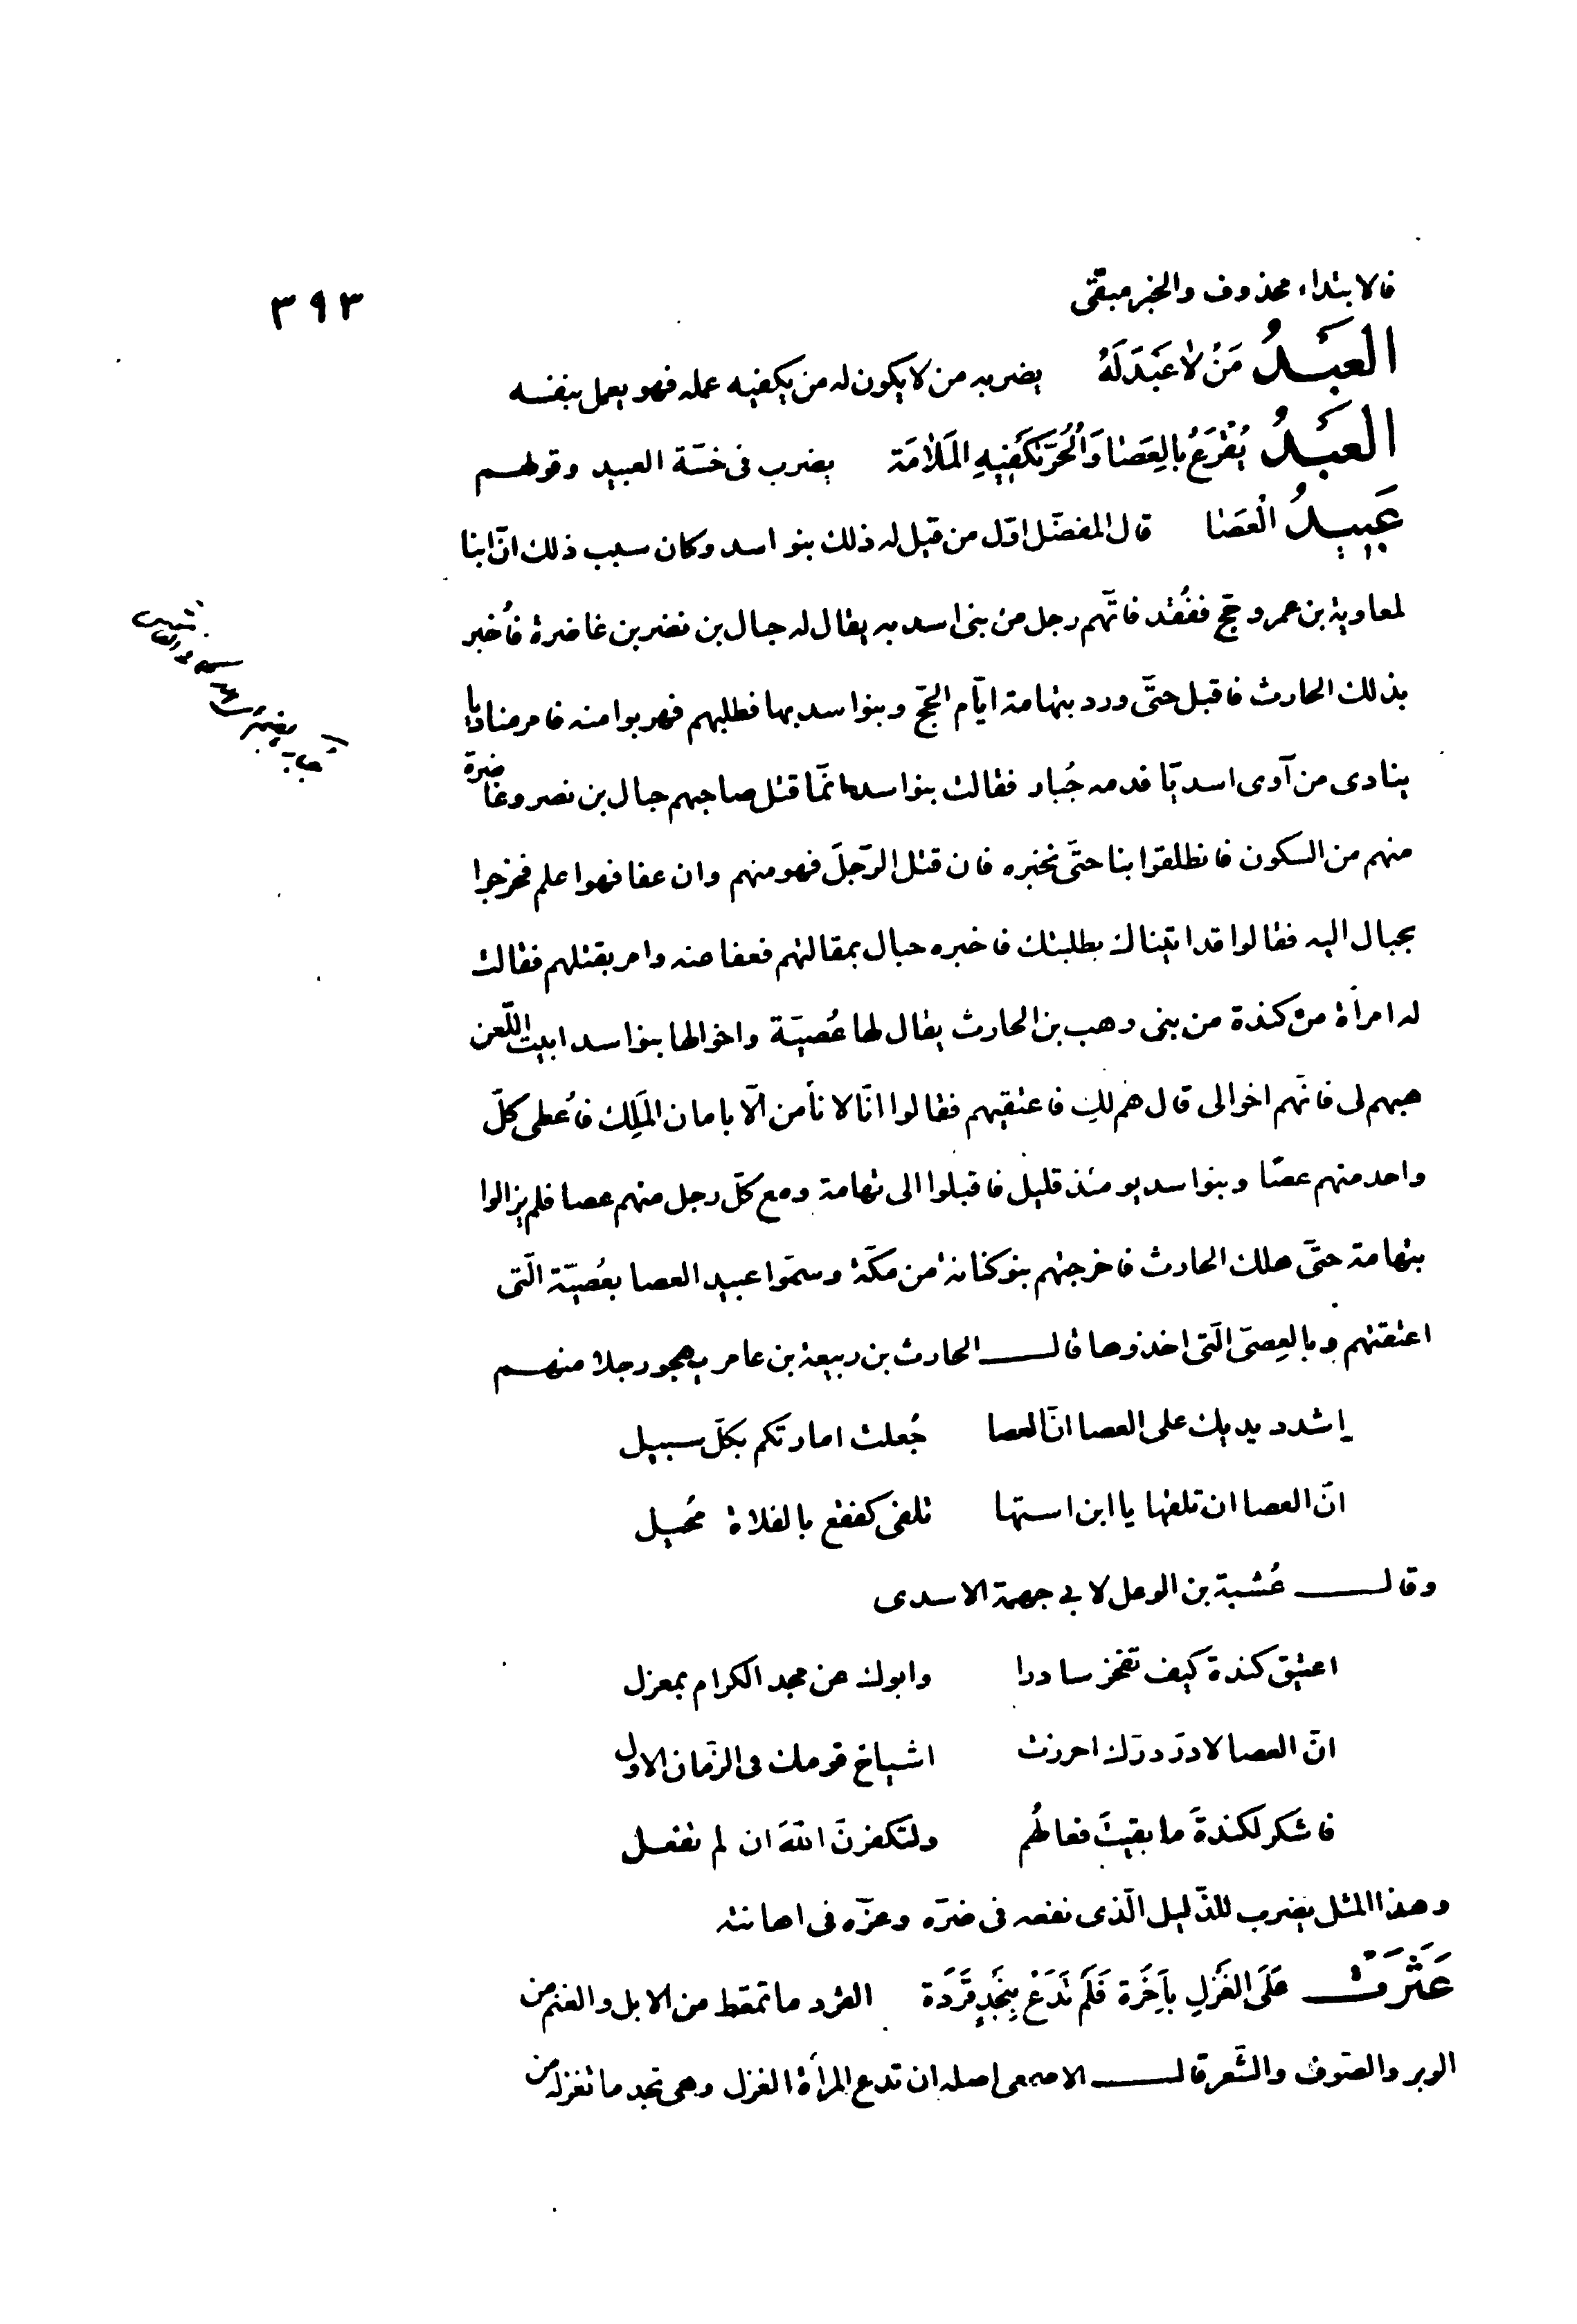 ٣٩٣
فالابتداء محذوف والخبر مبقّى
العَبْدُ مَنْ لاٰ عَبْدَ لَهُ يضرب من لا يكون له من يكفيه عمله فهو يعمل بنفسه
العَبْدُ يُقْرَعُ بِالعَصٰا وَالْحُرُّ تَكْفِيهِ المَلاٰمَة يضرب فى خسّة العبيد وقولهم
عَبِيدُ الْعَصٰا قال المفضّل اوّل من قيل له ذلك بنو اسد وكان سبب ذلك انّ ابنا
لمعاوية بن عمرو حجّ ففُقد فاتّهم رجل من بنى اسد به يقال له حبال بن نضر بن غاضرة فاُخبر
بذلك الحارث فاقبل حتّى ورد بتهامة ايّام الحجّ وبنو اسد بها فطلبهم فهربوا منه فامر مناديا
ينادى من آوى اسديّا فدمه جُبار فقالت بنو اسد انّما قتل صاحبهم حبال بن نصر وغاضرة
منهم من السكون فانطلقوا بنا حتّى نخبره فان قتل الرّجل فهو منهم وان عفا فهو اعلم فخرجوا
بحبال اليه فقالوا قد اتيناك بطلبتك فاخبره حبال بمقالتهم فعفا عنه وامر بقتلهم فقالت
له امرأة من كندة من بنى وهب بن الحارث يقال لها عُصيّة واخوالها بنو اسد ابيت اللّعن
هبهم لى فانّهم اخوالى قال هم لكِ فاعتقيهم فقالوا انّا لا نأمن الّا بامان المَلِك فاُعطى كلّ
واحد منهم عصًا وبنو اسد يومئذ قليل فاقبلوا الى تهامة ومع كلّ رجل منهم عصا فلم يزالوا
بتهامة حتّى هلك الحارث فاخرجتهم بنو كنانة من مكّة وسمّوا عبيد العصا بعُصيّة الّتى
اعتقتهم وبالعِصىّ الّتى اخذوها قال الحارث بن ربيعة بن عامر يهجو رجلا منهم
اِشدد يديك على العصا انّ العصا جُعلت امارتكم بكلّ سبيل
انّ العصا ان تلفها يا ابن استها تلفى كفقع بالفلاة مُحيل
وقال عُتبة بن الوعل لابى جهمة الاسدى
اعتيق كندة كيف تفخر سادرا وابوك عن مجد الكرام بمعزل
انّ العصا لا درّ درّك احرزت اشياخ قومك فى الزّمان الاول
فاشكر لكندةَ ما بقيتَ فعالهُم ولتكفرنّ اللّهَ ان لم تفعل
وهذا المثل يضرب للذّليل الّذى نفعه فى ضرّه وعزّه فى اهانته
عَثَرَتْ عَلَى الغَزْلِ بِآخِرَة فَلَمْ تَدَعْ بِنَجْدٍ قَرَدَة القرد ما تمعّط من الابل والغنم من
الوبر والصّوف والشّعر قال الاصمعى اصله ان تدع المرأة الغزل وهى تجد ما تغزله من